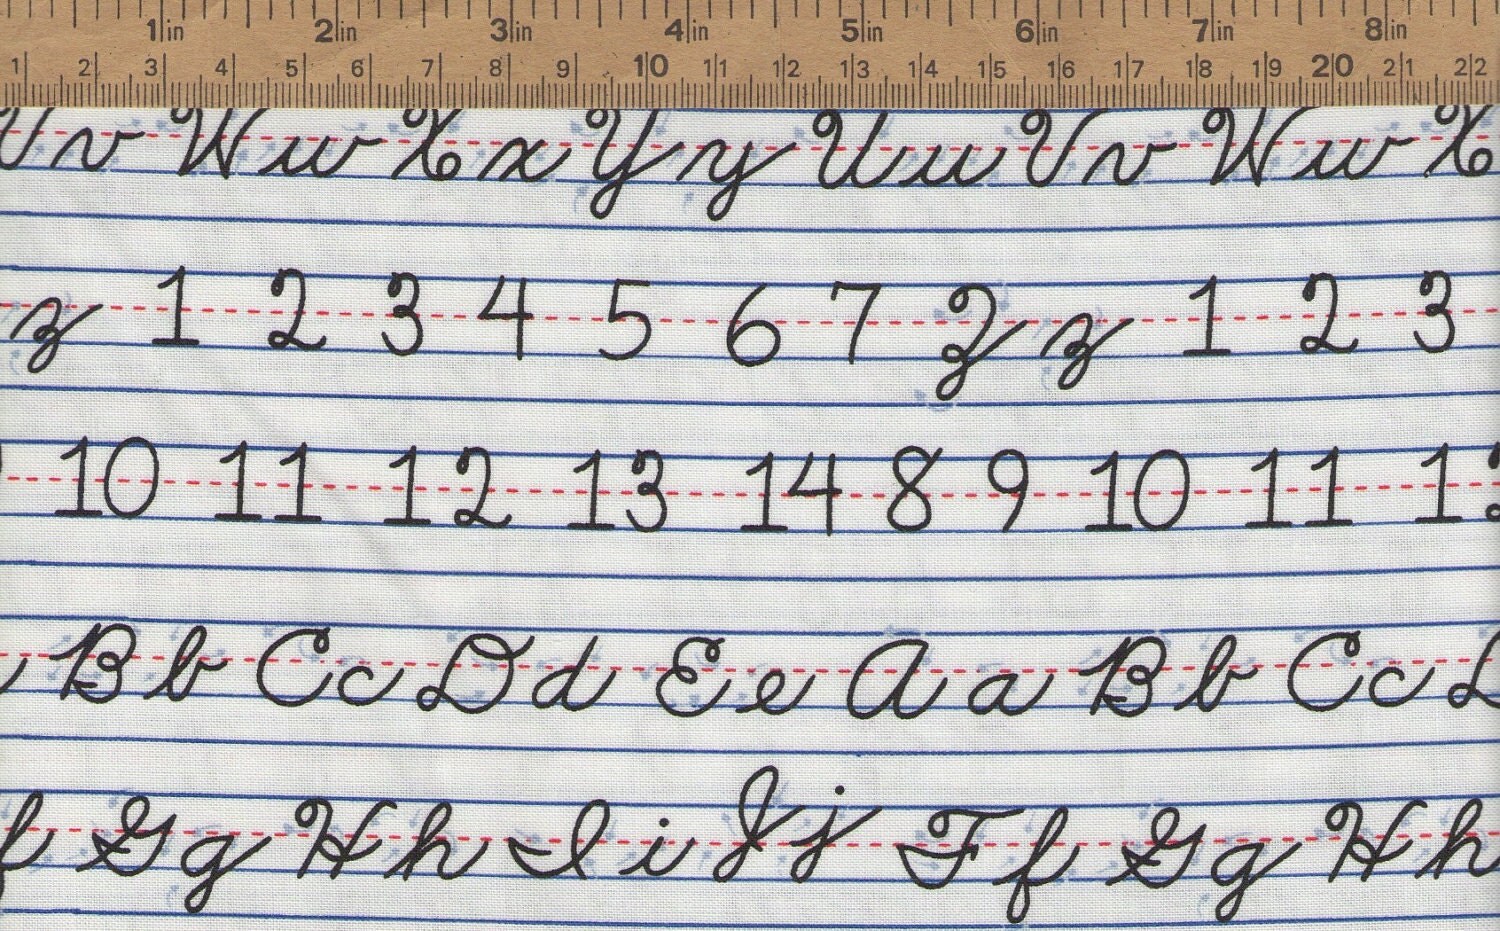 1in 2in 3in 4in 5in 6in 7in 8in
1 2 3 4 5 6 7 8 9 10 11 12 13 14 15 16 17 18 19 20 21 22
V v W w X x Y y U u V v W w X
z 1 2 3 4 5 6 7 Z z 1 2 3
10 11 12 13 14 8 9 10 11
B b C c D d E e A a B b C c D
f G g H h I i J j F f G g H h